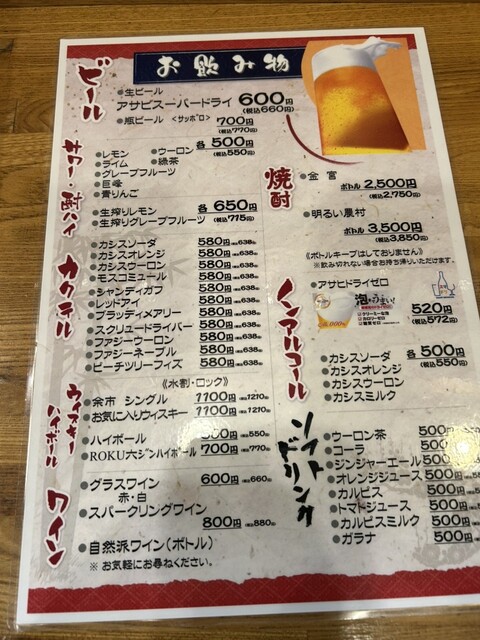 お飲み物
ビール
●生ビール
アサヒスーパードライ 600円(税込660円)
●瓶ビール <サッポロ> 700円(税込770円)
サワー・酎ハイ
各500円(税込550円)
●レモン ●ウーロン
●ライム ●緑茶
●グレープフルーツ
●巨峰
●青りんご
●生搾りレモン 各650円
●生搾りグレープフルーツ (税込715円)
カクテル
●カシスソーダ 580円(税込638円)
●カシスオレンジ 580円(税込638円)
●カシスウーロン 580円(税込638円)
●モスコミュール 580円(税込638円)
●シャンディガフ 580円(税込638円)
●レッドアイ 580円(税込638円)
●ブラッディメアリー 580円(税込638円)
●スクリュードライバー 580円(税込638円)
●ファジーウーロン 580円(税込638円)
●ファジーネーブル 580円(税込638円)
●ピーチツリーフィズ 580円(税込638円)
ウィスキー
ハイボール
《水割・ロック》
●余市 シングル 1100円(税込1210円)
●お気に入りウィスキー 1100円(税込1210円)
●ハイボール 00円(税込550円)
●ROKU六ジンハイボール 700円(税込770円)
ワイン
●グラスワイン 600円(税込660円)
赤・白
●スパークリングワイン
800円(税込880円)
●自然派ワイン(ボトル)
※ お気軽にお尋ねください。
焼酎
●金宮
ボトル 2,500円
(税込2,750円)
●明るい農村
ボトル 3,500円
(税込3,850円)
《ボトルキープはしておりません》
※飲み切れない場合お持ち帰りいただけます。
ノンアルコール
●アサヒドライゼロ
泡がうまい!
クリーミーな泡
カロリーゼロ
糖質ゼロ
0.00%
520円
(税込572円)
各500円
(税込550円)
●カシスソーダ
●カシスオレンジ
●カシスウーロン
●カシスミルク
ソフトドリンク
●ウーロン茶 500円
●コーラ 500円
●ジンジャーエール 500円
●オレンジジュース 500円
●カルピス 500円
●トマトジュース 500円
●カルピスミルク 500円
●ガラナ 500